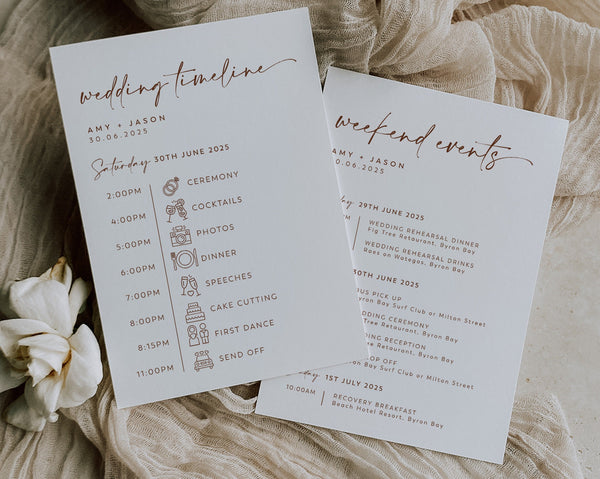 wedding timeline
AMY + JASON
30.06.2025
Saturday 30TH JUNE 2025
2:00PM CEREMONY
4:00PM COCKTAILS
5:00PM PHOTOS
6:00PM DINNER
7:00PM SPEECHES
8:00PM CAKE CUTTING
8:15PM FIRST DANCE
11:00PM SEND OFF
weekend events
AMY + JASON
30.06.2025
29TH JUNE 2025
WEDDING REHEARSAL DINNER
Fig Tree Retaurant, Byron Bay
WEDDING REHEARSAL DRINKS
Raes on Wategos, Byron Bay
30TH JUNE 2025
PICK UP
Byron Bay Surf Club or Milton Street
WEDDING CEREMONY
Tree Retaurant, Byron Bay
WEDDING RECEPTION
Retaurant, Byron Bay
OFF
Bay Surf Club or Milton Street
1ST JULY 2025
10:00AM RECOVERY BREAKFAST
Beach Hotel Resort, Byron Bay